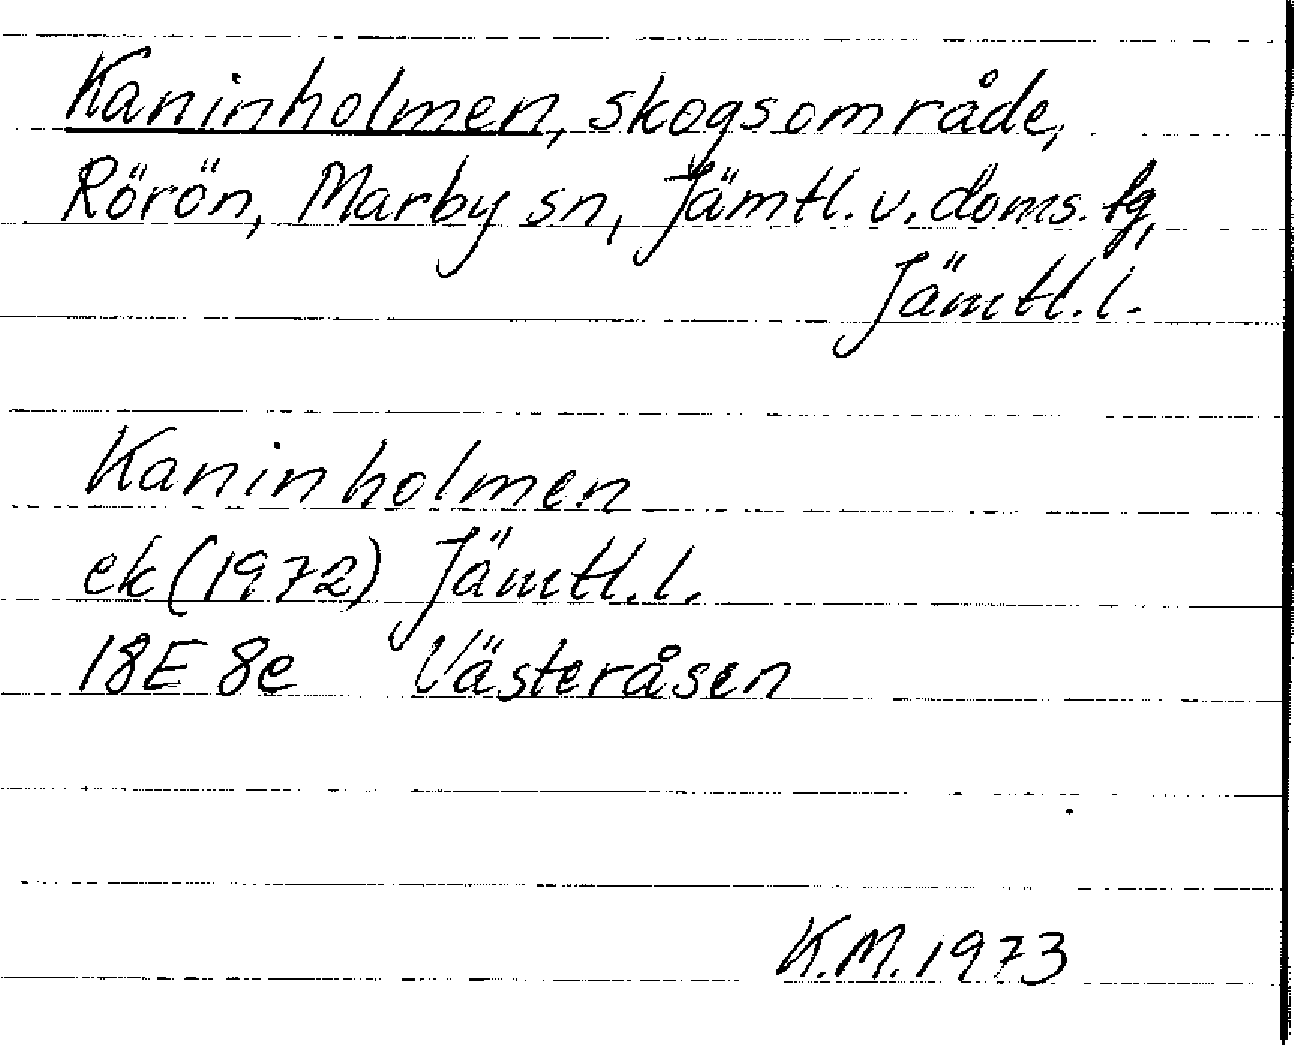 Kaninholmen, skogsområde,
Rörön, Marby sn, Jämtl. v. doms. tg,
Jämtl. l.
Kaninholmen
ek (1972) Jämtl. l.
18E 8e Västeråsen
K.M. 1973